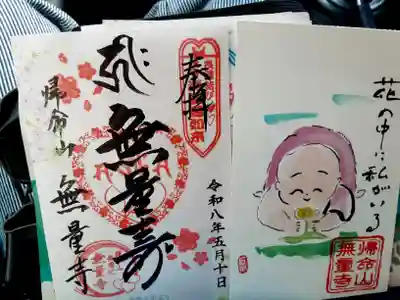 奉拝
無量寿
帰命山
無量寺
令和八年五月十日
花の中に私がいる
帰命山
無量寺